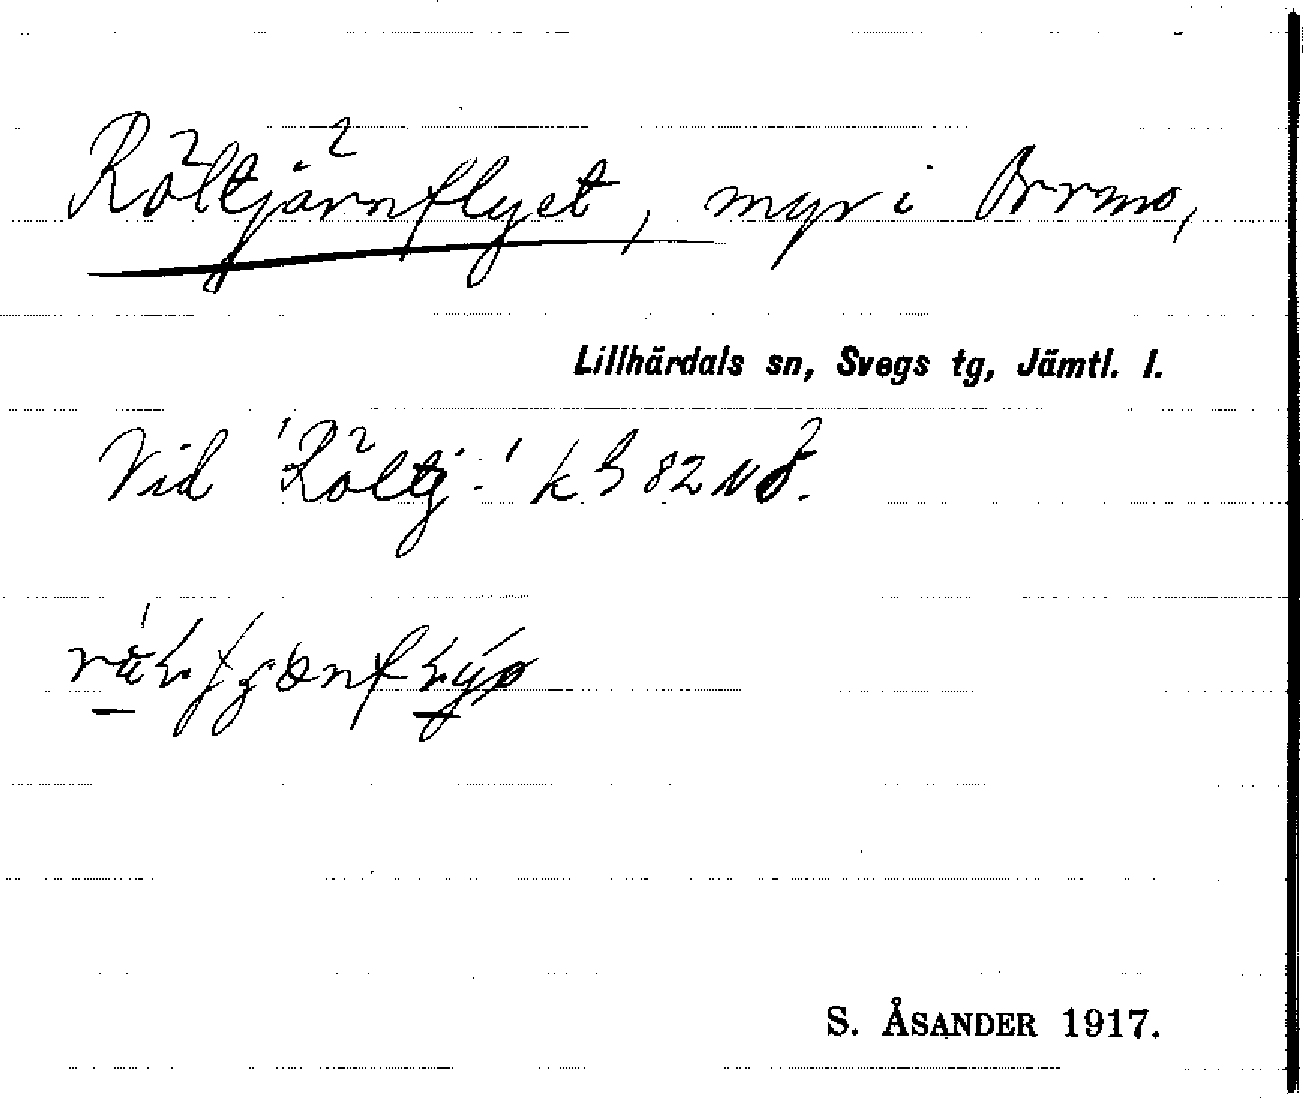 Röltjärnflyet, myr i Orrmo,
Lillhärdals sn, Svegs tg, Jämtl. l.
Vid 'Röltj:' k 3 82 NÖ.
S. ÅSANDER 1917.